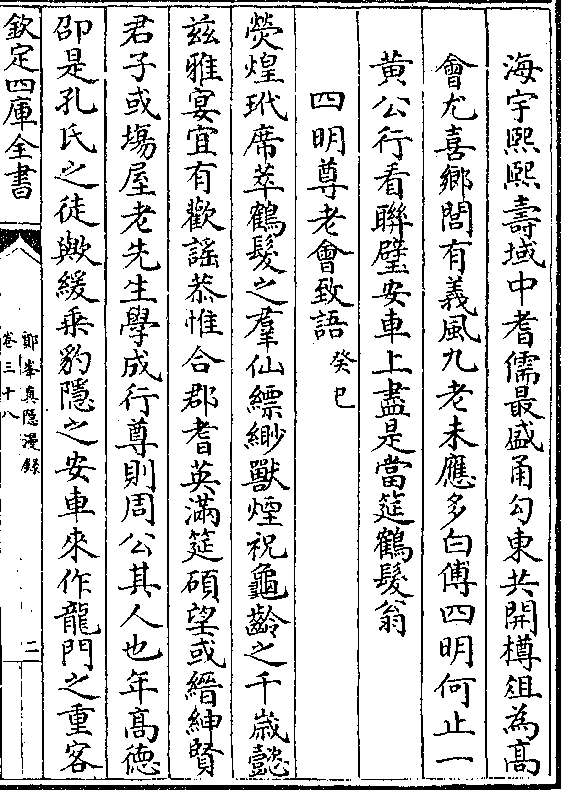 海宇熈熈壽域中耆儒最盛甬勾東共開樽俎為高
會尤喜鄉閭有義風九老未應多白傅四明何止一
黄公行看聯璧安車上盡是當筵鶴髮翁
四明尊老會致語癸巳
熒煌玳席萃鶴髮之羣仙縹緲獸煙祝龜齡之千嵗懿
兹雅宴宜有歡謡恭惟合郡耆英滿筵碩望或縉紳賢
君子或塲屋老先生學成行尊則周公其人也年髙德
卲是孔氏之徒歟緩乗豹隱之安車來作龍門之重客
欽定四庫全書
鄮峯真隠漫録
卷三十八
二